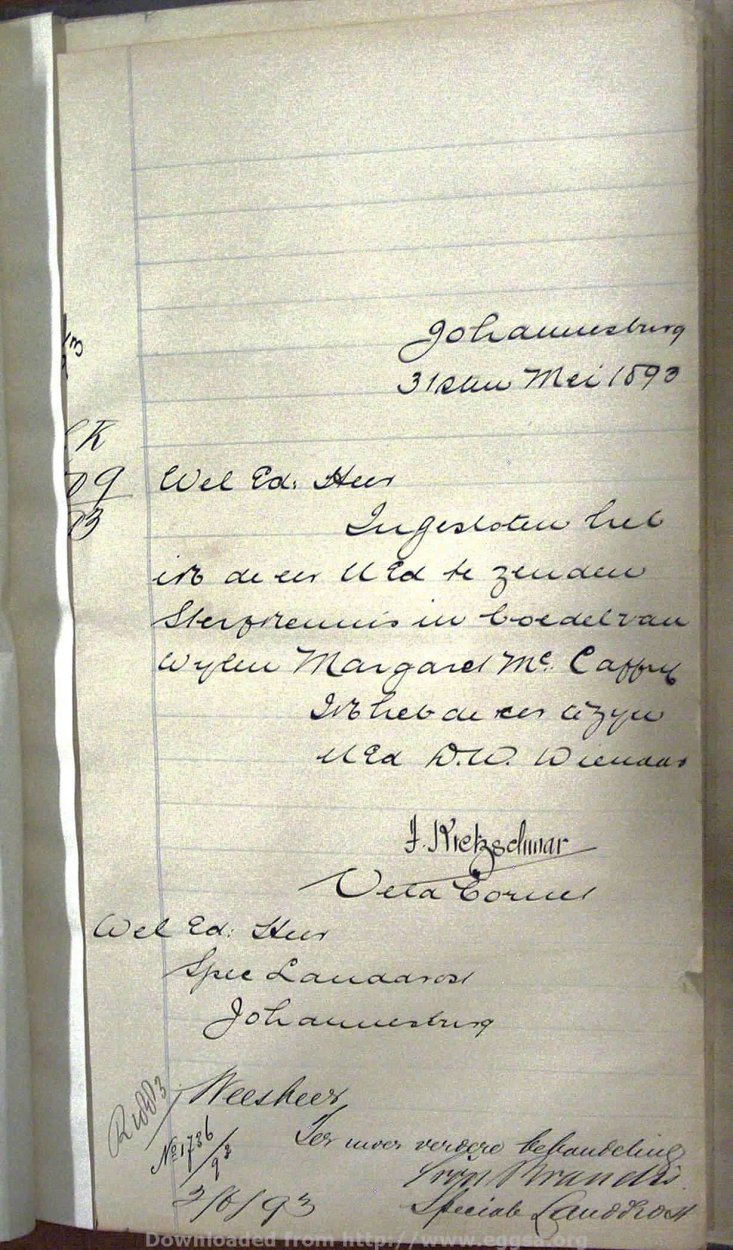 Johannesburg
31sten Mei 1893
Wel Ed. Heer
Ingesloten heb
ik de eer U Ed te zenden
Sterfkennis in boedel van
Wylen Margaret Mc. Caffry
Ik heb de eer te zyn
U Ed D.W. Dienaar
J. Kietzschmar
Veld Cornet
Wel Ed. Heer
Spec Landdrost
Johannesburg
Weesheer
Ter uwer verdere behandeling
No 1736/93
Brandis
Speciale Landdrost
2/6/93
Downloaded from http://www.eggsa.org